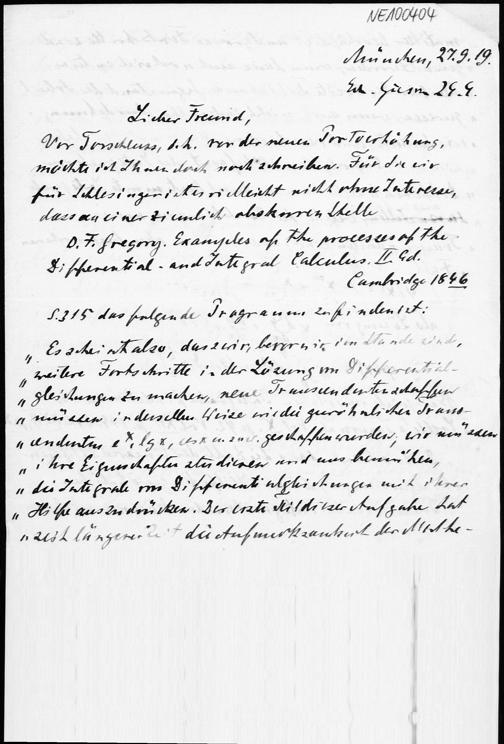 NE100404
München, 27.9.19.
Erh. Giessen 29.9.
Lieber Freund,
Vor Torschluss, d.h. vor der neuen Portoerhöhung,
möchte ich Ihnen doch noch schreiben. Für Sie wie
für Schlesinger ist es vielleicht nicht ohne Interesse,
dass an einer ziemlich obskuren Stelle
D. F. Gregory. Examples of the processes of the
Differential- and Integral Calculus. II Ed.
Cambridge 1846
S. 315 das folgende Programm zu finden ist:
„ Es scheint also, dass wir, bevor wir im Stande sind,
„ weitere Fortschritte in der Lösung von Differential-
„ gleichungen zu machen, neue Transcendenten schaffen
„ müssen in derselben Weise wie die gewöhnlichen Trans-
„ cendenten eˣ, lg x, cos x u.s.w. geschaffen wurden, wir müssen
„ ihre Eigenschaften studieren und uns bemühen,
„ die Integrale von Differentialgleichungen mit ihrer
„ Hilfe auszudrücken. Der erste Teil dieser Aufgabe hat
„ seit längerer Zeit die Aufmerksamkeit der Mathe-